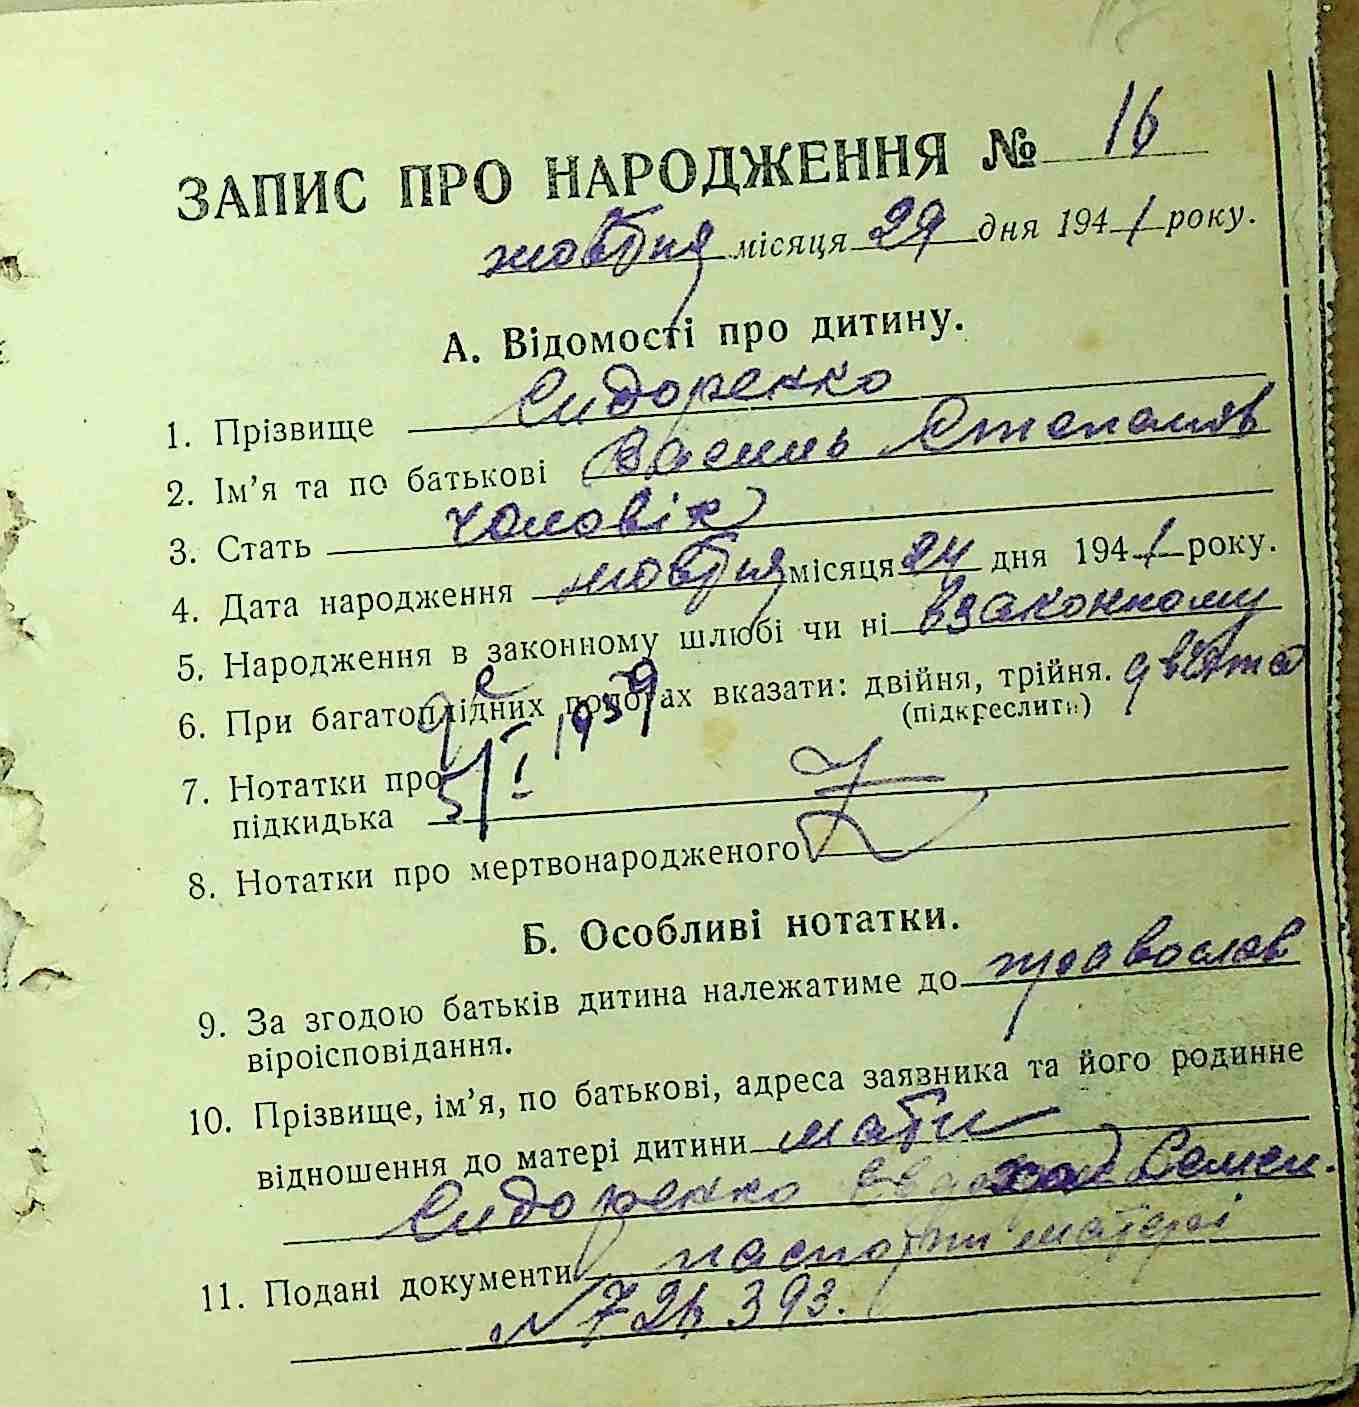 ЗАПИС ПРО НАРОДЖЕННЯ № 16
жовтня місяця 29 дня 1941 року.
А. Відомості про дитину.
1. Прізвище Сидоренко
2. Ім'я та по батькові Василь Степанов
3. Стать чоловік
4. Дата народження жовтня місяця 24 дня 1941 року.
5. Народження в законному шлюбі чи ні взаконному
6. При багатоплідних пологах вказати: двійня, трійня.
(підкреслити)
1959
7. Нотатки про
підкидька
8. Нотатки про мертвонародженого
Б. Особливі нотатки.
9. За згодою батьків дитина належатиме до православ
віроісповідання.
10. Прізвище, ім'я, по батькові, адреса заявника та його родинне
відношення до матері дитини мати
Сидоренко Семен.
11. Подані документи паспорт матері
№